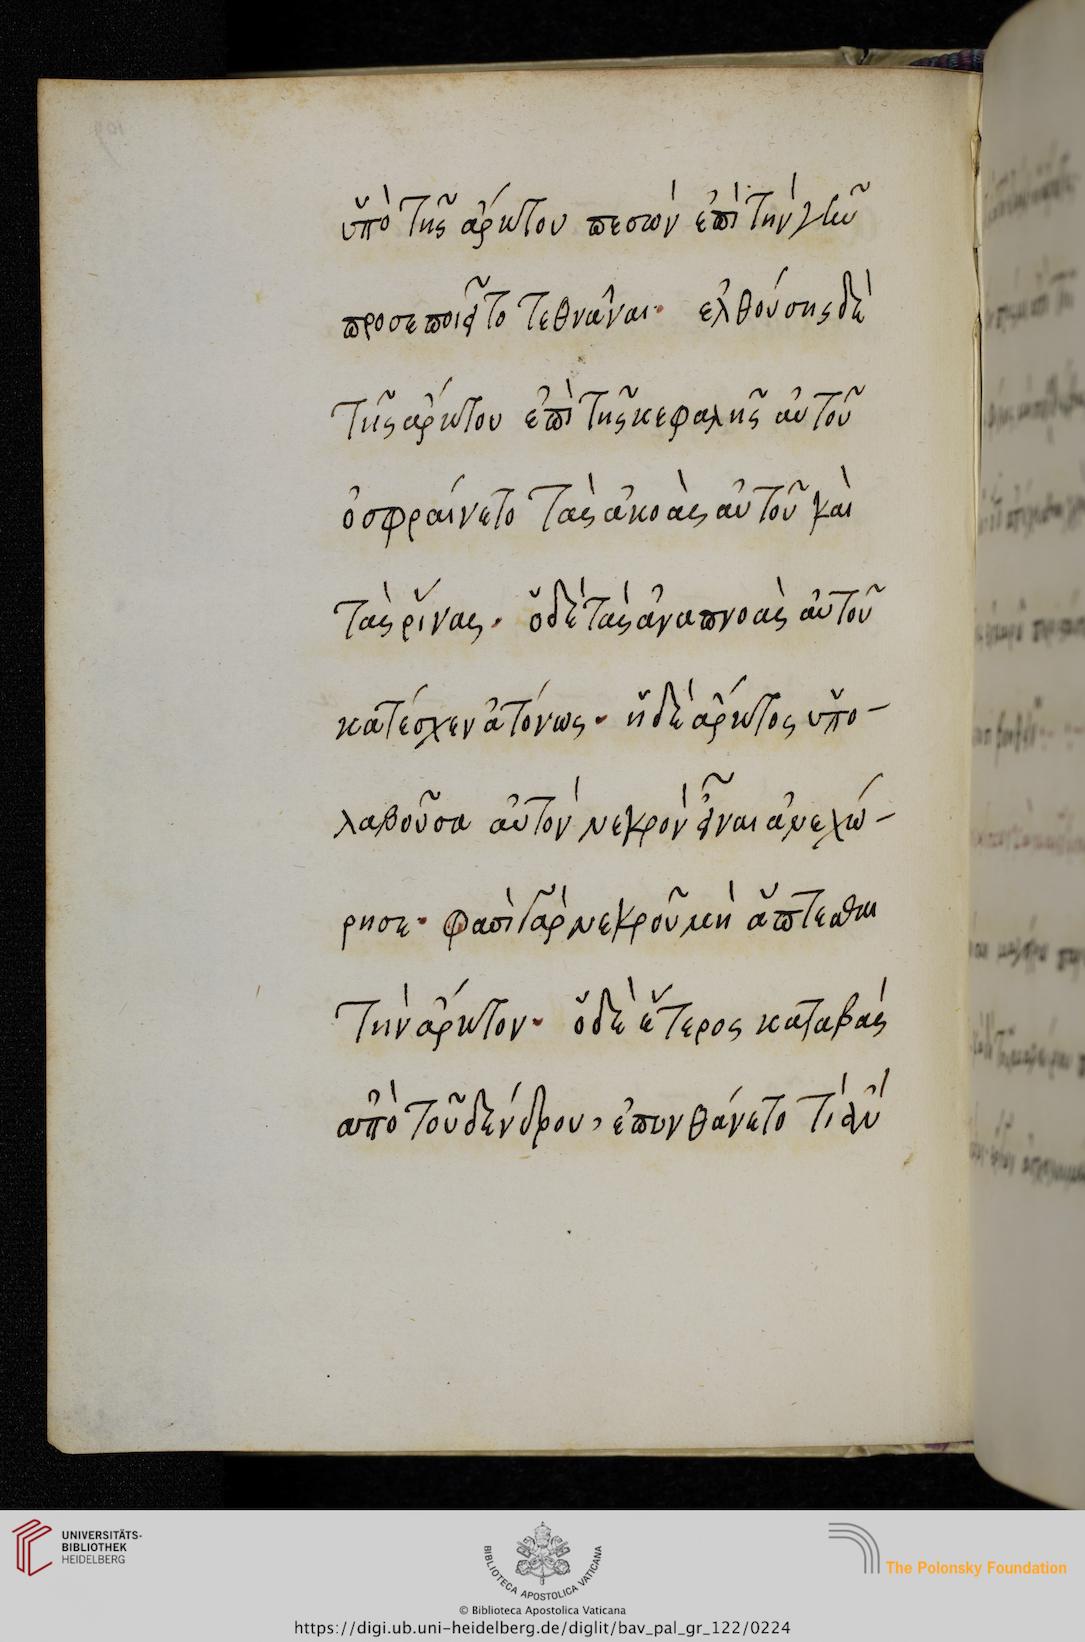 ὑπὸ τῆς ἄρκτου πεσὼν ἐπὶ τὴν γῆν
προσεποιεῖτο τεθνᾶναι· ἐλθούσης δὲ
τῆς ἄρκτου ἐπὶ τῆς κεφαλῆς αὐτοῦ
ὀσφραίνετο τὰς ἀκοὰς αὐτοῦ καὶ
τὰς ῥίνας· ὁ δὲ τὰς ἀναπνοὰς αὐτοῦ
κατέσχεν ἀτόνως· ἡ δὲ ἄρκτος ὑπο-
λαβοῦσα αὐτὸν νεκρὸν εἶναι ἀνεχώ-
ρησε· φασὶ γὰρ νεκροῦ μὴ ἅπτεσθαι
τὴν ἄρκτον· ὁ δὲ ἕτερος καταβὰς
ἀπὸ τοῦ δένδρου, ἐπυνθάνετο τί
109
UNIVERSITÄTS-
BIBLIOTHEK
HEIDELBERG
BIBLIOTECA APOSTOLICA VATICANA
© Biblioteca Apostolica Vaticana
The Polonsky Foundation
https://digi.ub.uni-heidelberg.de/diglit/bav_pal_gr_122/0224